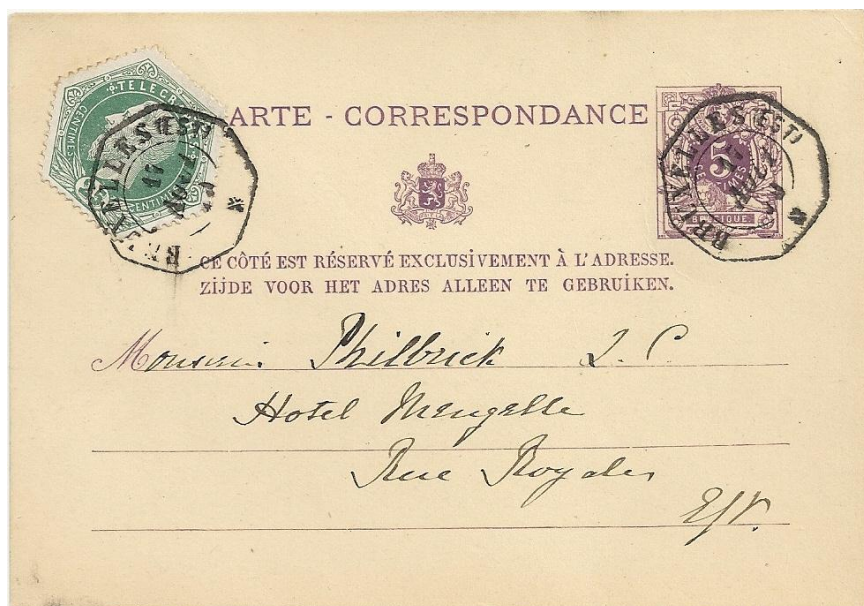 TELEGR
CENTIMES
CENTIMES
BRUXELLES (EST)
17
AOUT
CARTE - CORRESPONDANCE
5
BELGIQUE
BRUXELLES (EST)
17
AOUT
CE CÔTÉ EST RÉSERVÉ EXCLUSIVEMENT À L'ADRESSE.
ZIJDE VOOR HET ADRES ALLEEN TE GEBRUIKEN.
Monsieur Philbrick Q. C.
Hotel Mengelle
Rue Royale